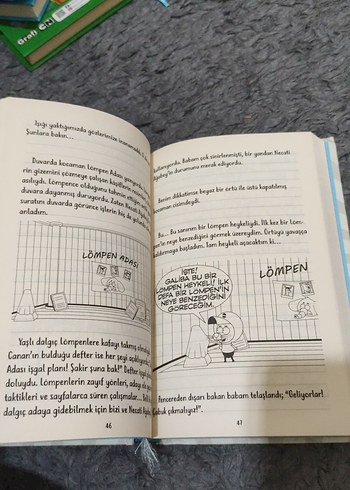 Grafi
Işığı yaktığımızda gözlerimize inanamadık.
Şunlara bakın...
Duvarda kocaman Lömpen Adası
rin gizemini çözmeye çalışan
asılıydı. Lömpence olduğunu tahmin ettiğim
duvara dayanmış duruyordu. Zaten
suratını duvarda görünce işlerin hiç de
anladım.
LÖMPEN ADASI
Yaşlı dalgıç lömpenlere kafayı takmış
Canan'ın bulduğu defter ise her şeyi
Adası işgal planı! Şakir şuna bak!" Defter
doluydu. Lömpenlerin zayıf yönleri, adayı
taktikleri ve sayfalarca süren çalışmalar...
dalgıç adaya gidebilmek için bizi ve Necati
46
Babam çok sinirlenmişti, bir yandan Necati
durumunu merak ediyordu.
Benim dikkatimse beyaz bir örtü ile üstü kapatılmış
Bu... Bu sanırım bir lömpen heykeliydi. İlk kez bir löm-
neye benzediğini görmek üzereydim. Örtüyü yavaşça
başladım. Tam heykeli açacaktım ki...
İŞTE!
GALİBA BU BİR
LÖMPEN HEYKELİ! İLK
DEFA BİR LÖMPEN'İN
NEYE BENZEDİĞİNİ
GÖRECEĞİM.
LÖMPEN
Pencereden dışarı bakan babam telaşlandı; "Geliyorlar!
Çabuk çıkmalıyız!".
47